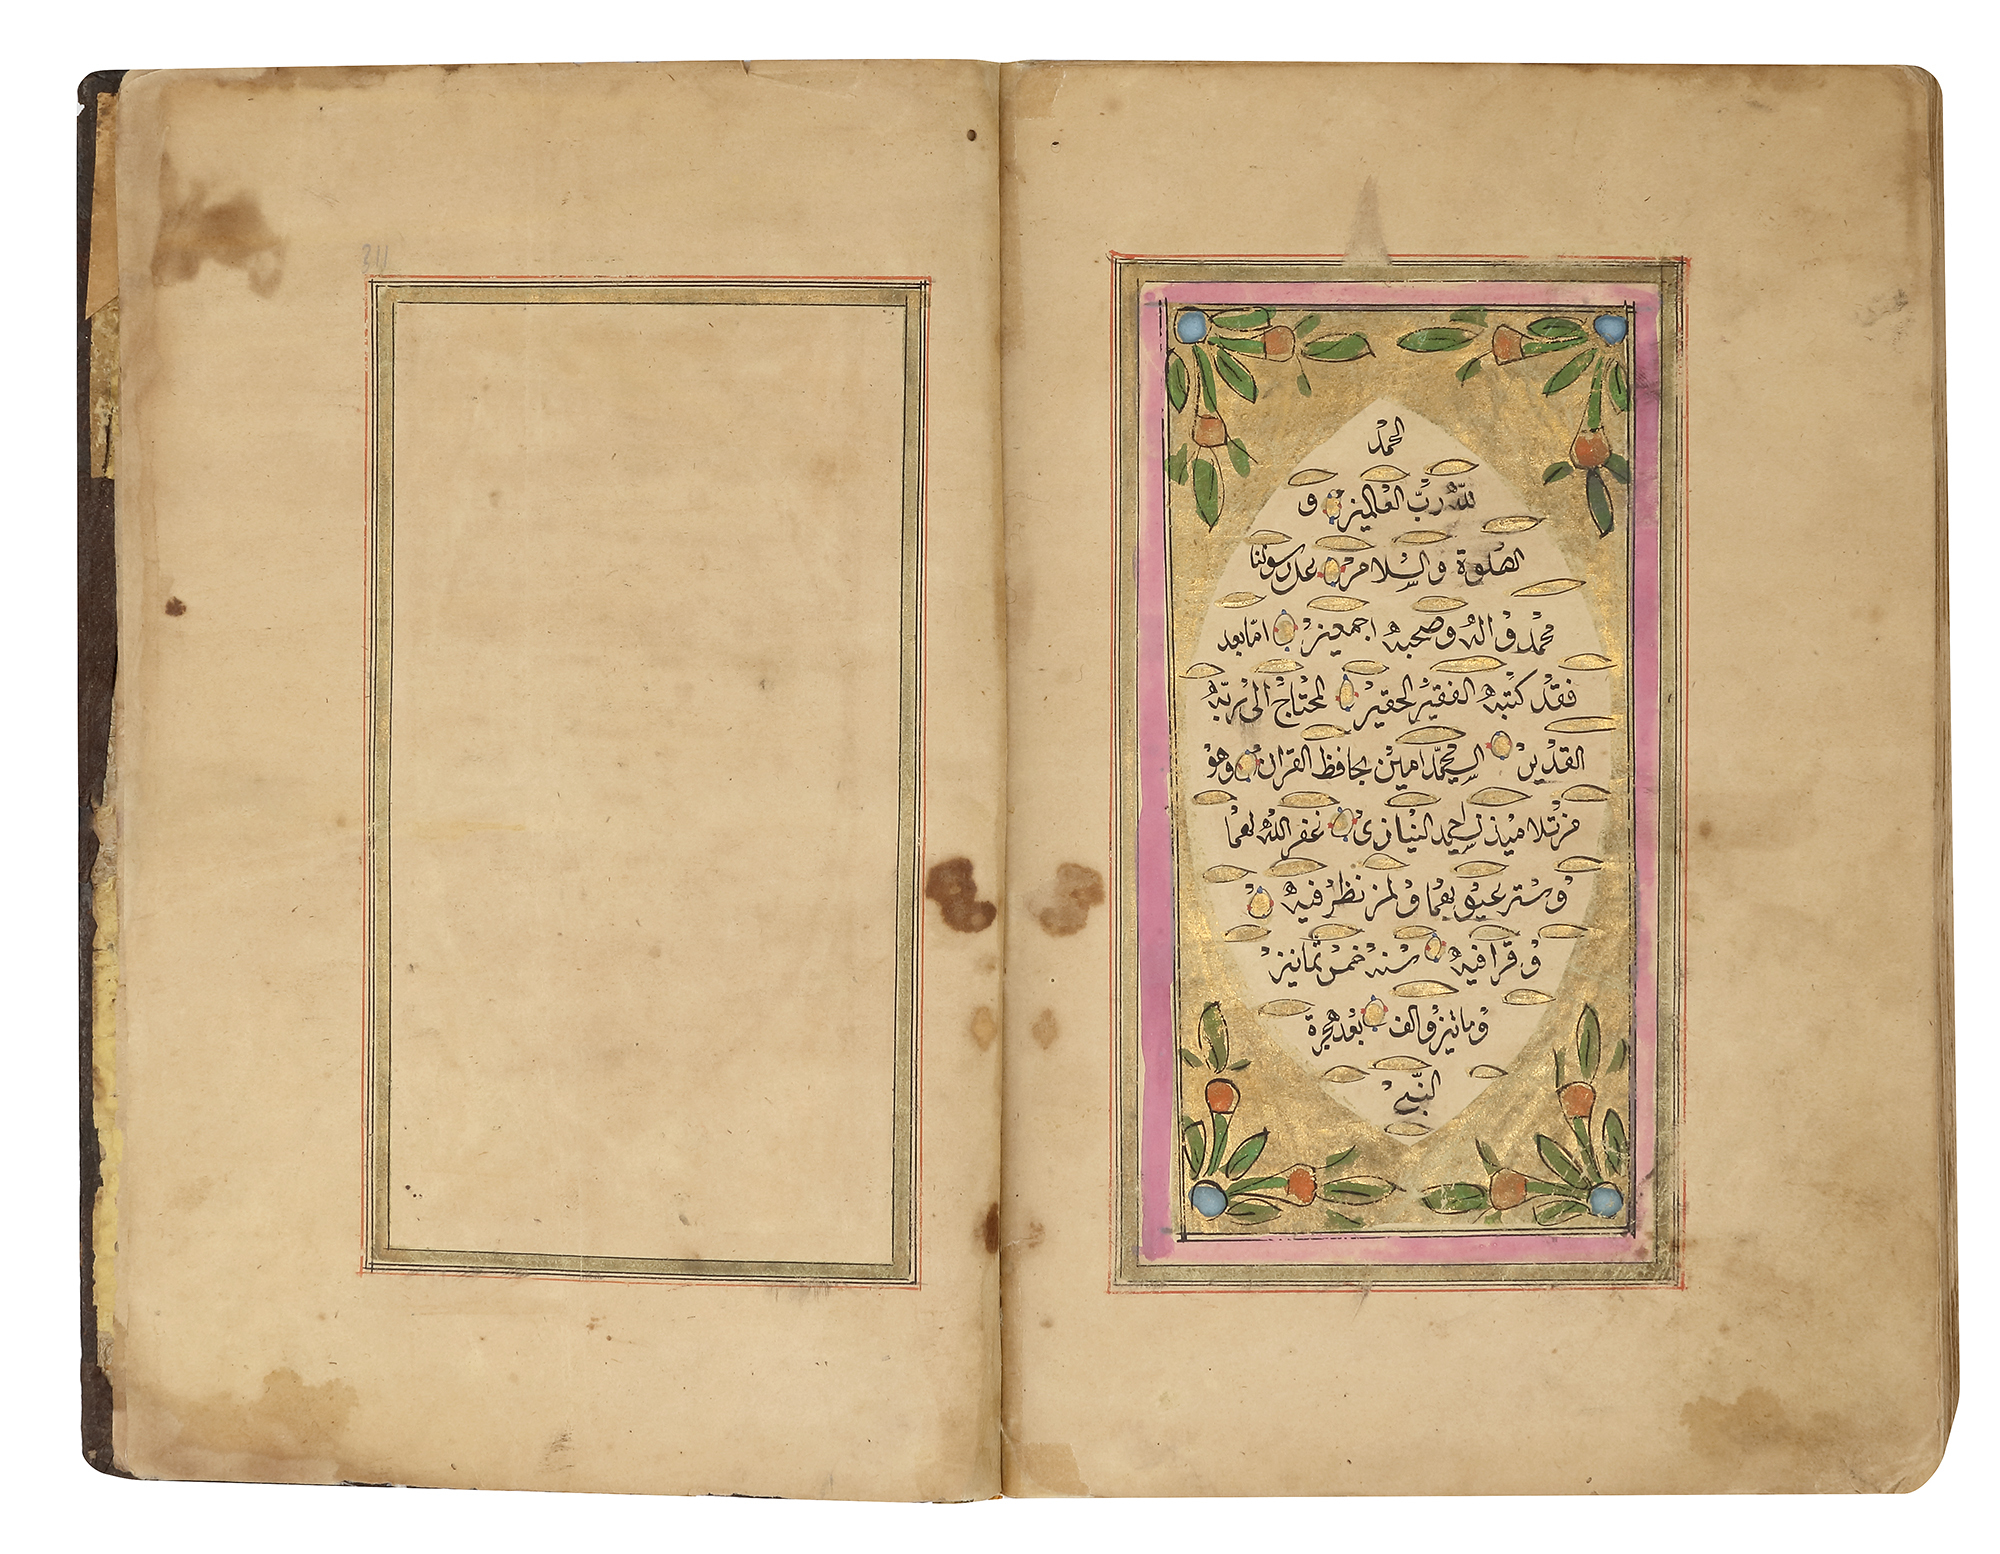 الحمد
لله ربّ العالمين و
الصلوة والسّلام على رسولنا
محمد و اله وصحبه اجمعين امّا بعد
فقد كتبه الفقير الحقير المحتاج الى ربّه
القدير السيد محمّد امين بحافظ القران وهو
من تلاميذ السيد احمد النيازى غفر الله لهما
و ستر عيوبهما و لمن نظر فيه
و قرا فيه سنه خمس ثمانين
و ماتين والف بعد هجرة
النبىّ